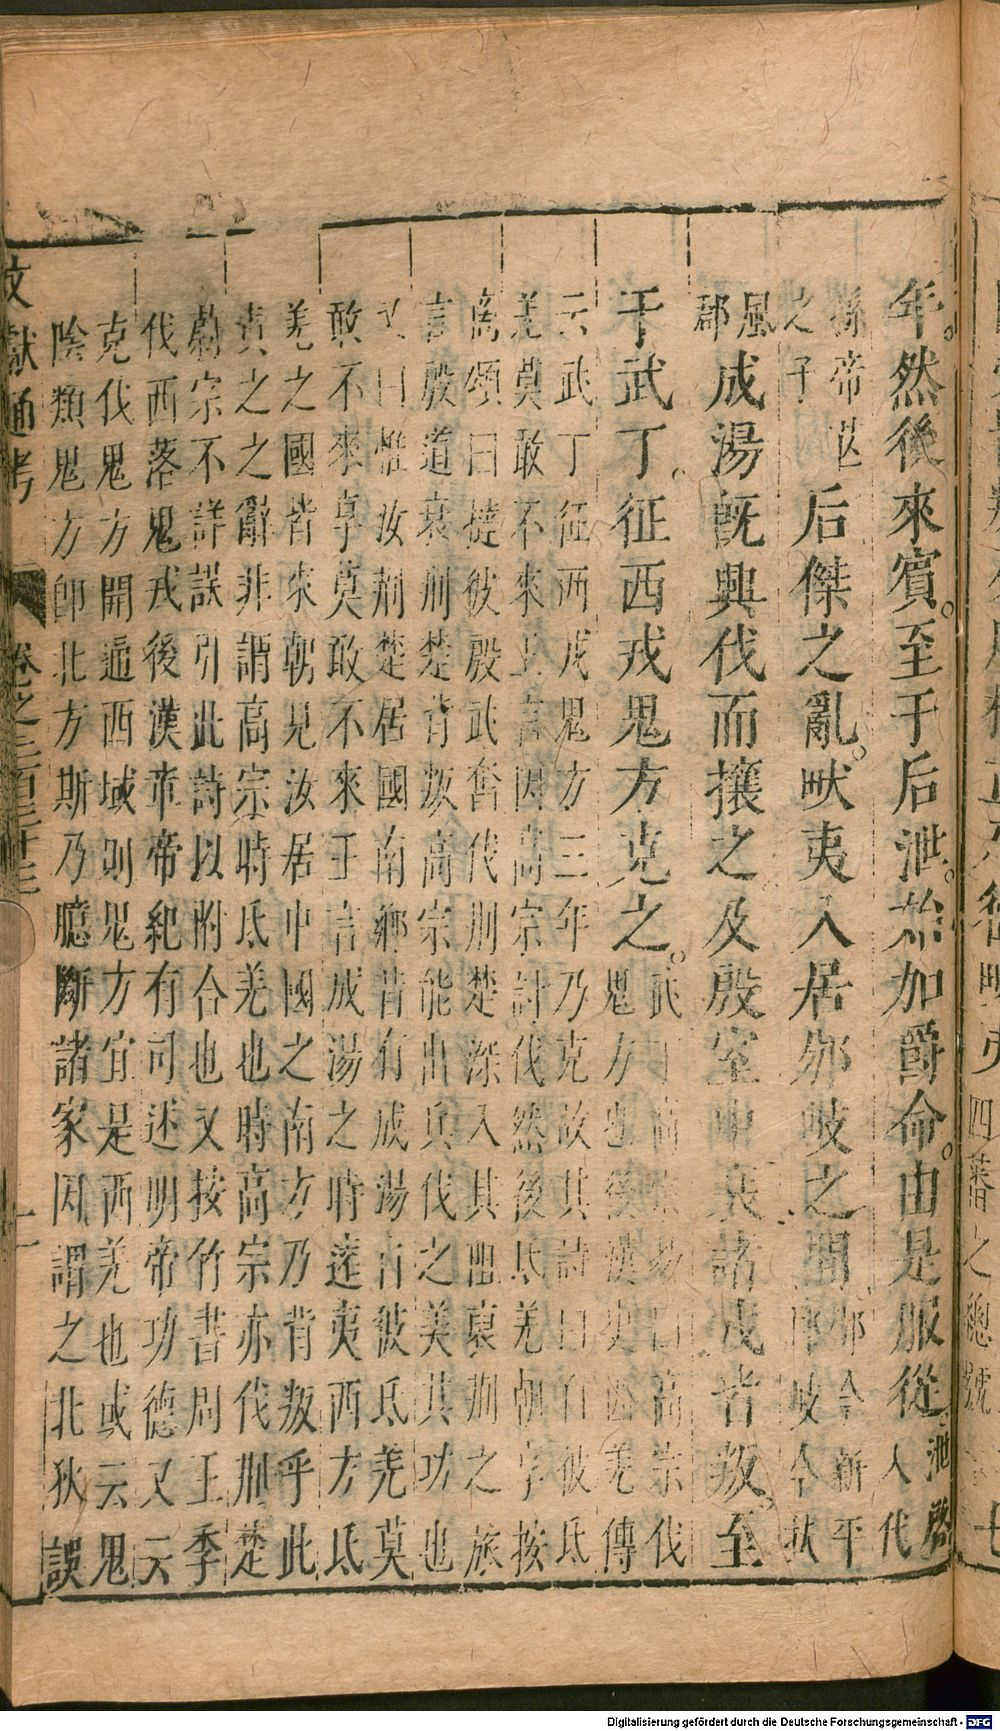 年然後來賓至于后泄始加爵命由是服從泄啓
人代
孫帝芒
之子后傑之亂畎夷入居邠岐之間邠今新平
郡岐今扶
風
郡成湯既興伐而攘之及殷室中衰諸戎皆叛至
于武丁征西戎鬼方克之武丁高宗易曰高宗伐
鬼方也後漢史西羌傳
云武丁征西戎鬼方三年乃克故其詩曰自彼氐
羌莫敢不來王言因高宗討伐然後氐羌朝享按
商頌曰撻彼殷武奮伐荆楚深入其阻裒荆之旅
言殷道衰荆楚背叛高宗能出兵伐之美其功也
又曰惟汝荆楚居國南鄉昔有成湯自彼氐羌莫
敢不來享莫敢不來王言成湯之時遠夷西方氐
羌之國皆來朝見汝居中國之南方乃背叛乎此
責之之辭非謂高宗時氐羌也時高宗亦伐荆楚
蔚宗不詳誤引此詩以附合也又按竹書周王季
伐西落鬼戎後漢章帝紀有司述明帝功德又云
克伐鬼方開遍西域則鬼方宜是西羌也或云鬼
陰類鬼方卽北方斯乃臆斷諸家因謂之北狄誤
文獻通考 卷之三百三十三 十一
四蕃之總號
Digitalisierung gefördert durch die Deutsche Forschungsgemeinschaft - DFG